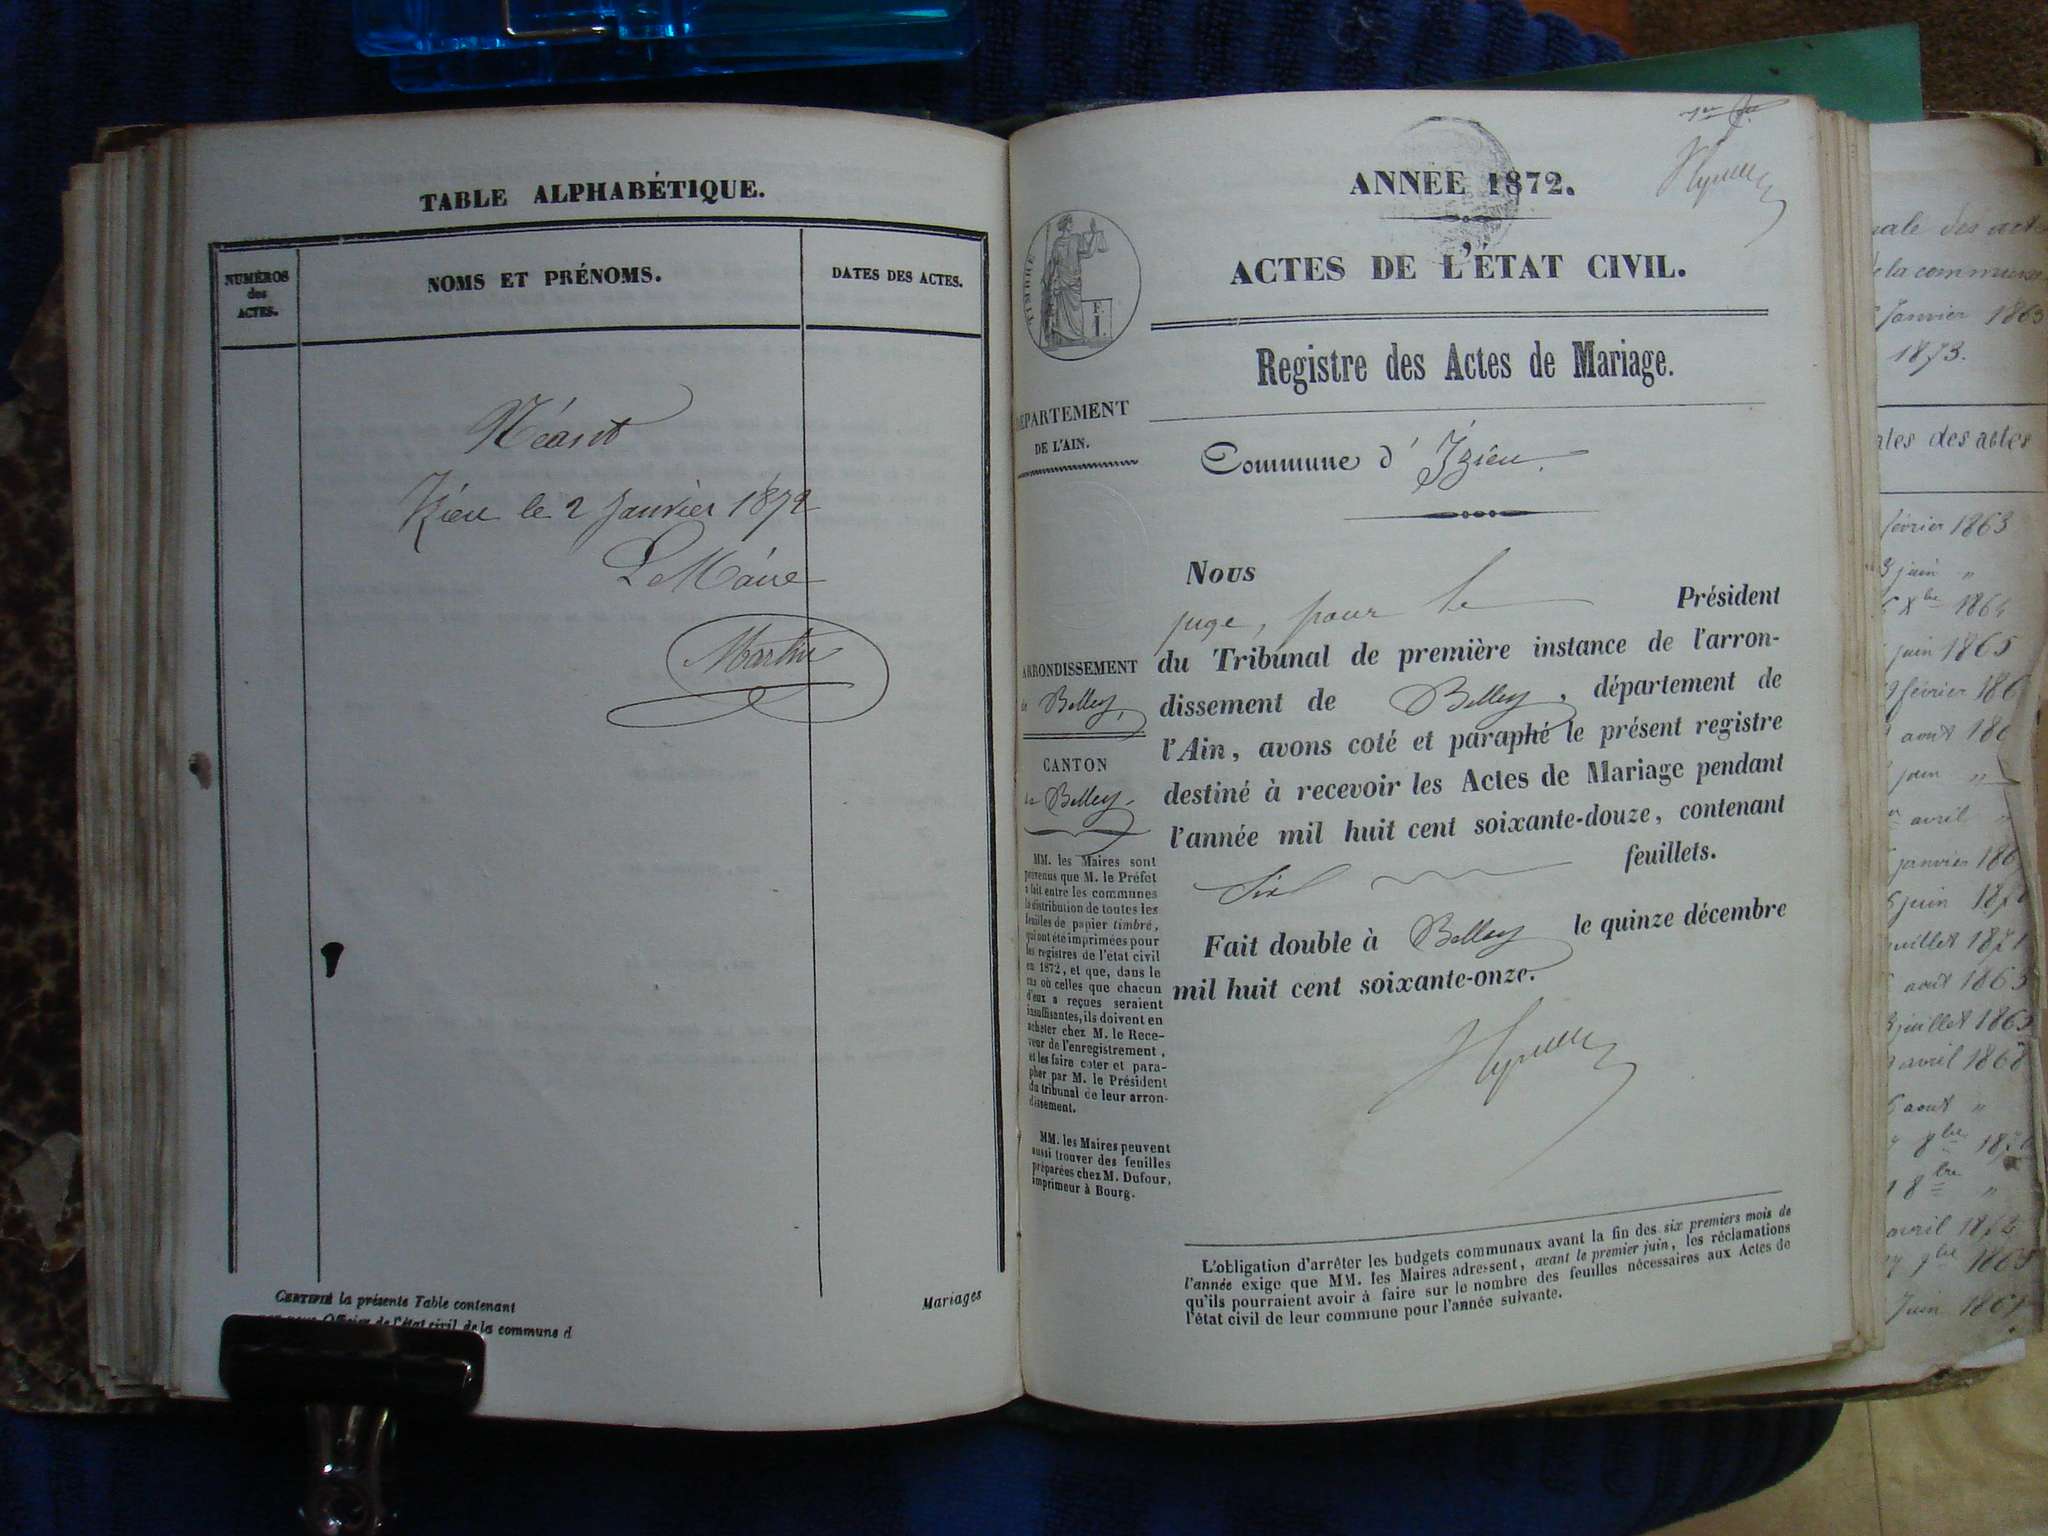 TABLE ALPHABÉTIQUE.
NUMÉROS
des
ACTES.
NOMS ET PRÉNOMS.
DATES DES ACTES.
Néant
Izieu le 2 Janvier 1872
Le Maire
Martin
CERTIFIÉ la présente Table contenant
Officier de l'état civil de la commune d
Mariages
1er
ANNÉE 1872.
ACTES DE L'ÉTAT CIVIL.
TIMBRE
Registre des Actes de Mariage.
DÉPARTEMENT
DE L'AIN.
Commune d' Izieu.
ARRONDISSEMENT
de Belley,
CANTON
de Belley.
MM. les Maires sont
prévenus que M. le Préfet
a fait entre les communes
la distribution de toutes les
feuilles de papier timbré,
qui ont été imprimées pour
les registres de l'état civil
en 1872, et que, dans le
cas où celles que chacun
d'eux a reçues seraient
insuffisantes, ils doivent en
acheter chez M. le Rece-
veur de l'enregistrement,
et les faire coter et para-
pher par M. le Président
du tribunal de leur arron-
dissement.
MM. les Maires peuvent
aussi trouver des feuilles
préparées chez M. Dufour,
imprimeur à Bourg.
Nous
juge, pour le Président
du Tribunal de première instance de l'arron-
dissement de Belley, département de
l'Ain, avons coté et paraphé le présent registre
destiné à recevoir les Actes de Mariage pendant
l'année mil huit cent soixante-douze, contenant
six feuillets.
Fait double à Belley le quinze décembre
mil huit cent soixante-onze.
L'obligation d'arrêter les budgets communaux avant la fin des six premiers mois de
l'année exige que MM. les Maires adressent, avant le premier juin, les réclamations
qu'ils pourraient avoir à faire sur le nombre des feuilles nécessaires aux Actes de
l'état civil de leur commune pour l'année suivante.
des actes
de la commune
Janvier 1863
1873.
des actes
février 1863
juin "
Xbre 1864
juin 1865
février 186
août 186
juin "
avril "
janvier 186
juin 1870
juillet 1871
août 1863
juillet 1865
avril 1868
août "
8bre 1870
18bre "
avril 1872
9bre 1865
Juin 1867